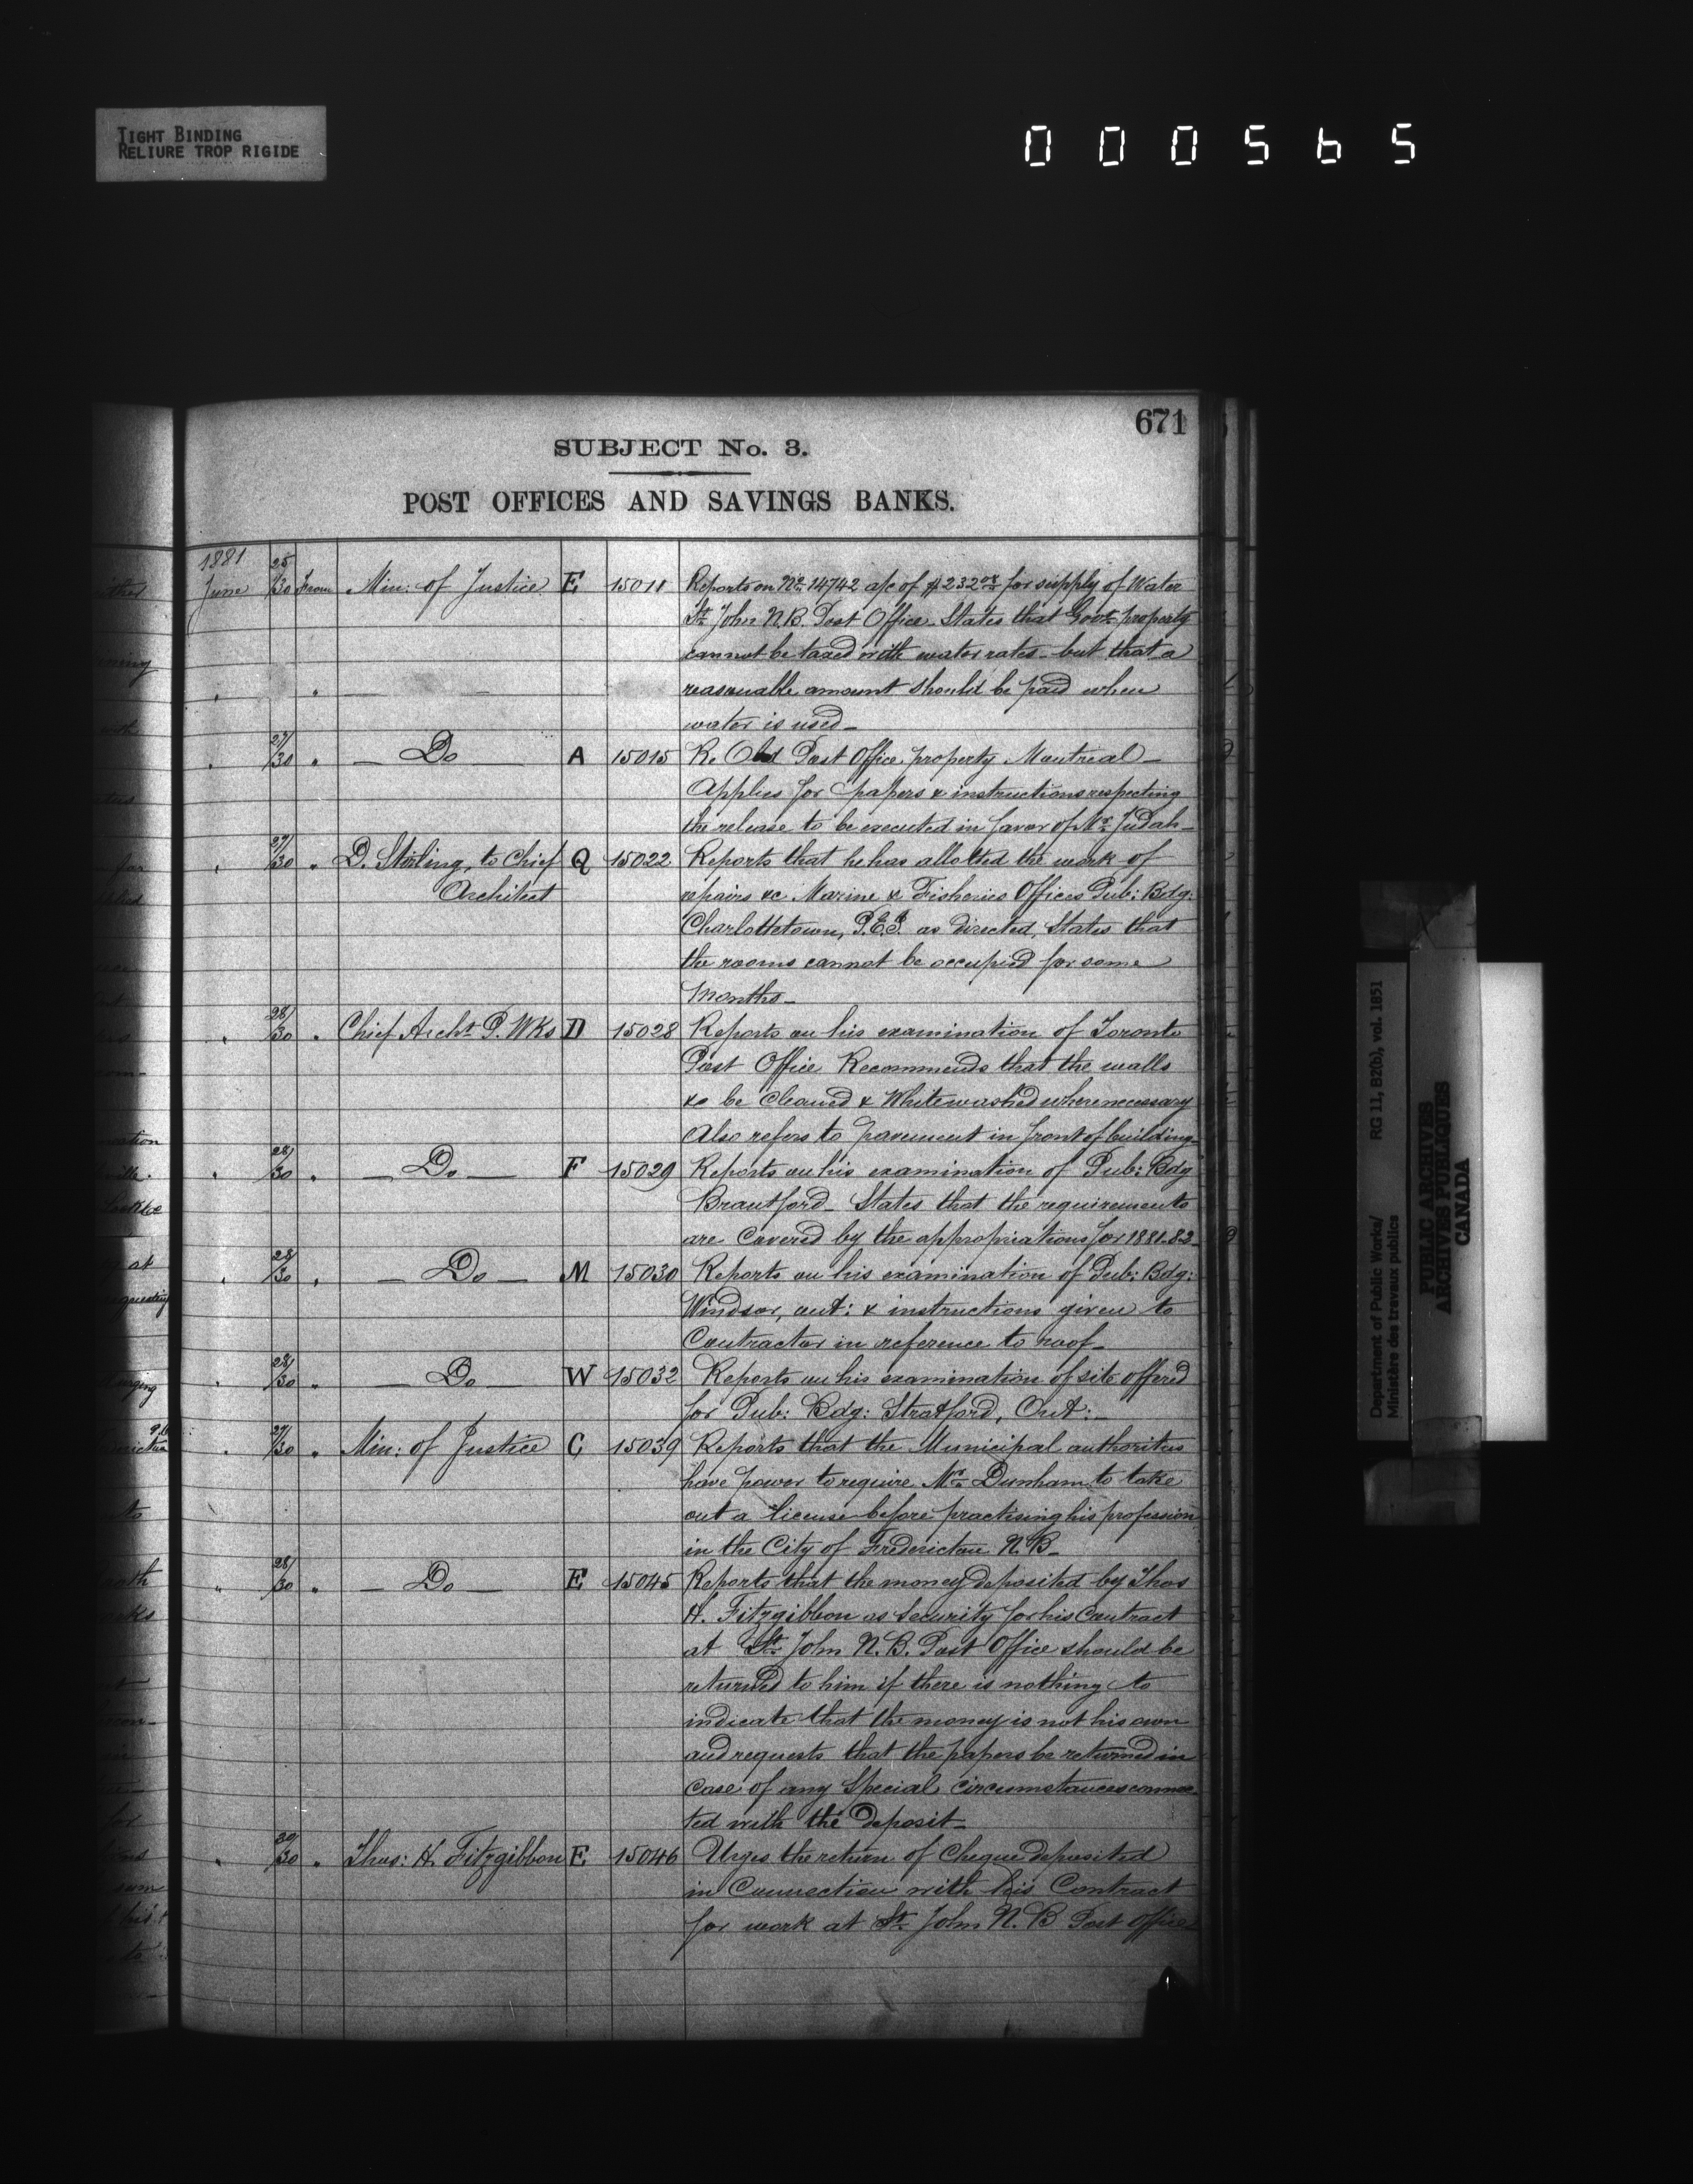 TIGHT BINDING
RELIURE TROP RIGIDE
000565
671
SUBJECT No. 3.
POST OFFICES AND SAVINGS BANKS.
1881
June 25/30 From Min: of Justice E 15011 Reports on No. 14742 a/c of $232 for supply of Water
St. John N.B. Post Office. States that Govt. property
cannot be taxed with water rates - but that a
" " — — reasonable amount should be paid when
water is used -
" 27/30 " — Do — A 15015 Re Old Post Office property Montreal -
Applies for papers & instructions respecting
the release to be executed in favor of Mr. Judah -
" 27/30 " D. Stirling, to Chief Q 15022 Reports that he has allotted the work of
Architect repairs &c Marine & Fisheries Offices Pub: Bdg:
Charlottetown, P.E.I. as directed, States that
the rooms cannot be occupied for some
months -
" 28/30 " Chief Archt. P. Wks D 15028 Reports on his examination of Toronto
Post Office Recommends that the walls
&c be Cleaned & Whitewashed where necessary
Also refers to pavement in front of building -
" 28/30 " — Do — F 15029 Reports on his examination of Pub: Bdg
Brantford - States that the requirements
are Covered by the appropriations for 1881-82 -
" 28/30 " — Do — M 15030 Reports on his examination of Pub: Bdg:
Windsor, Ont: & instructions given to
Contractor in reference to roof -
" 28/30 " — Do — W 15032 Reports on his examination of site offered
for Pub: Bdg: Stratford, Ont: -
" 27/30 " Min: of Justice C 15039 Reports that the Municipal authorities
have power to require Dunham to take
out a license before practising his profession
in the City of Fredericton N.B -
" 28/30 " — Do — E 15045 Reports that the money deposited by Thos
H. Fitzgibbon as Security for his Contract
at St. John N.B. Post Office should be
returned to him if there is nothing to
indicate that the money is not his own
and requests that the papers be returned in
case of any Special circumstances connec-
ted with the deposit -
" 30/30 " Thos: H. Fitzgibbon E 15046 Urges the return of Cheque deposited
in Connection with his Contract
for work at St. John N.B Post Office
Department of Public Works/ RG 11, B2(b), vol. 1851
Ministère des travaux publics
PUBLIC ARCHIVES
ARCHIVES PUBLIQUES
CANADA